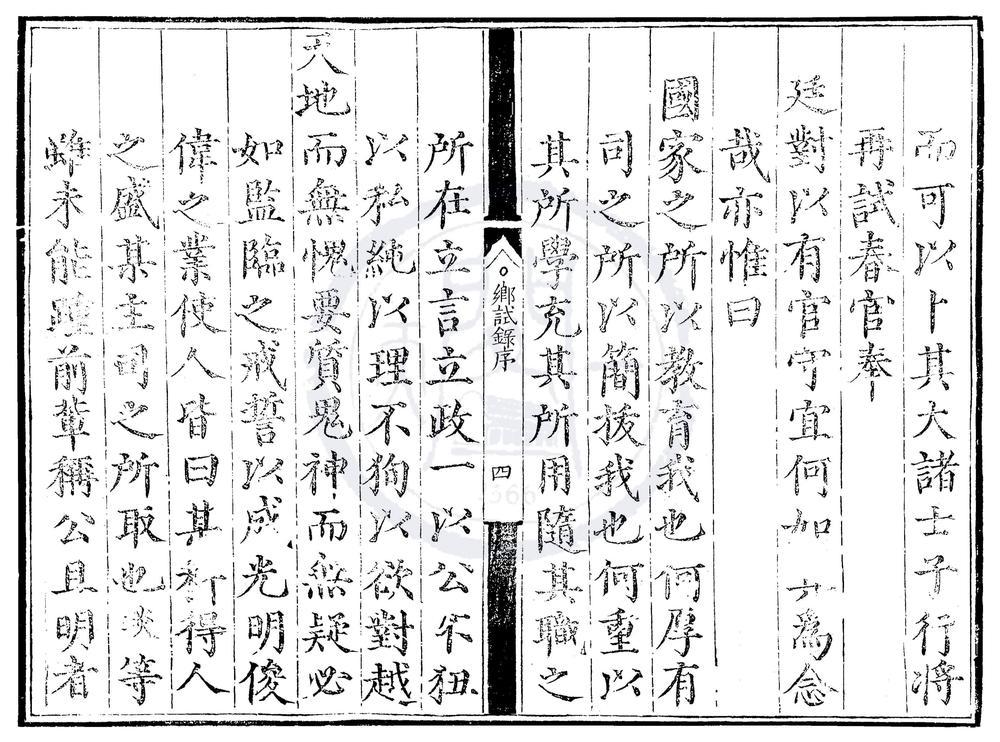 而可以卜其大諸士子行将
再試春官奉
廷對以有官守宜何如為念
哉亦惟曰
國家之所以教育我也何厚有
司之所以簡拔我也何重以
其所學充其所用隨其職之
鄉試錄序
四
所在立言立政一以公不狃
以私純以理不狥以欲對越
天地而無愧要質鬼神而無疑必
如監臨之戒誓以成光明俊
偉之業使人皆曰某科得人
之盛某主司之所取也某等
雖未能踵前輩稱公且明者